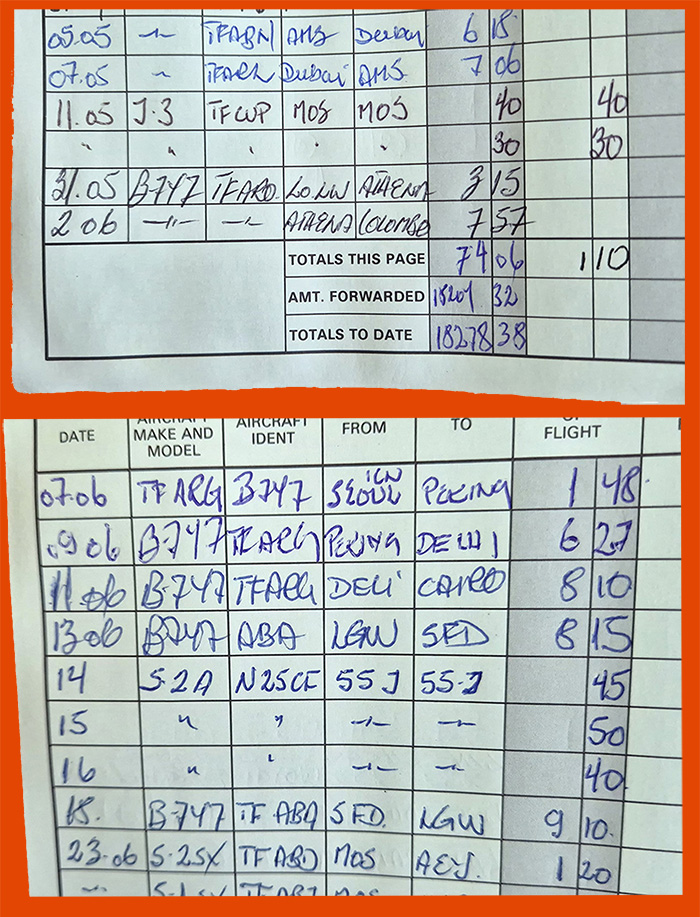 05.05 -"- TFABN AMS Dubai 6 18
07.05 " TFARL Dubai AMS 7 06
11.05 J.3 TFCUP MOS MOS 40 40
" " " " " 30 30
31.05 B747 TFARO ATHENA 3 15
2 06 -"- -"- ATHENA COLOMBO 7 57
TOTALS THIS PAGE 74 06 1 10
AMT. FORWARDED 32
TOTALS TO DATE 18278 38
DATE AIRCRAFT MAKE AND MODEL AIRCRAFT IDENT FROM TO OF FLIGHT
07.06 TFARG B747 SEOUL ICN PEKING 1 48
09 06 B-747 TFARG PEKING DELHI 6 27
11.06 B-747 TFARG DELI CAIRO 8 10
13.06 B747 ABA LGW SFD 8 15
14 S-2A N25CF 55J 55-J 45
15 " " -"- -"- 50
16 " " -"- -"- 40
18. B-747 TF ABA SFD. LGW 9 10.
23.06 S-2SX TFABD MOS AEY. 1 20